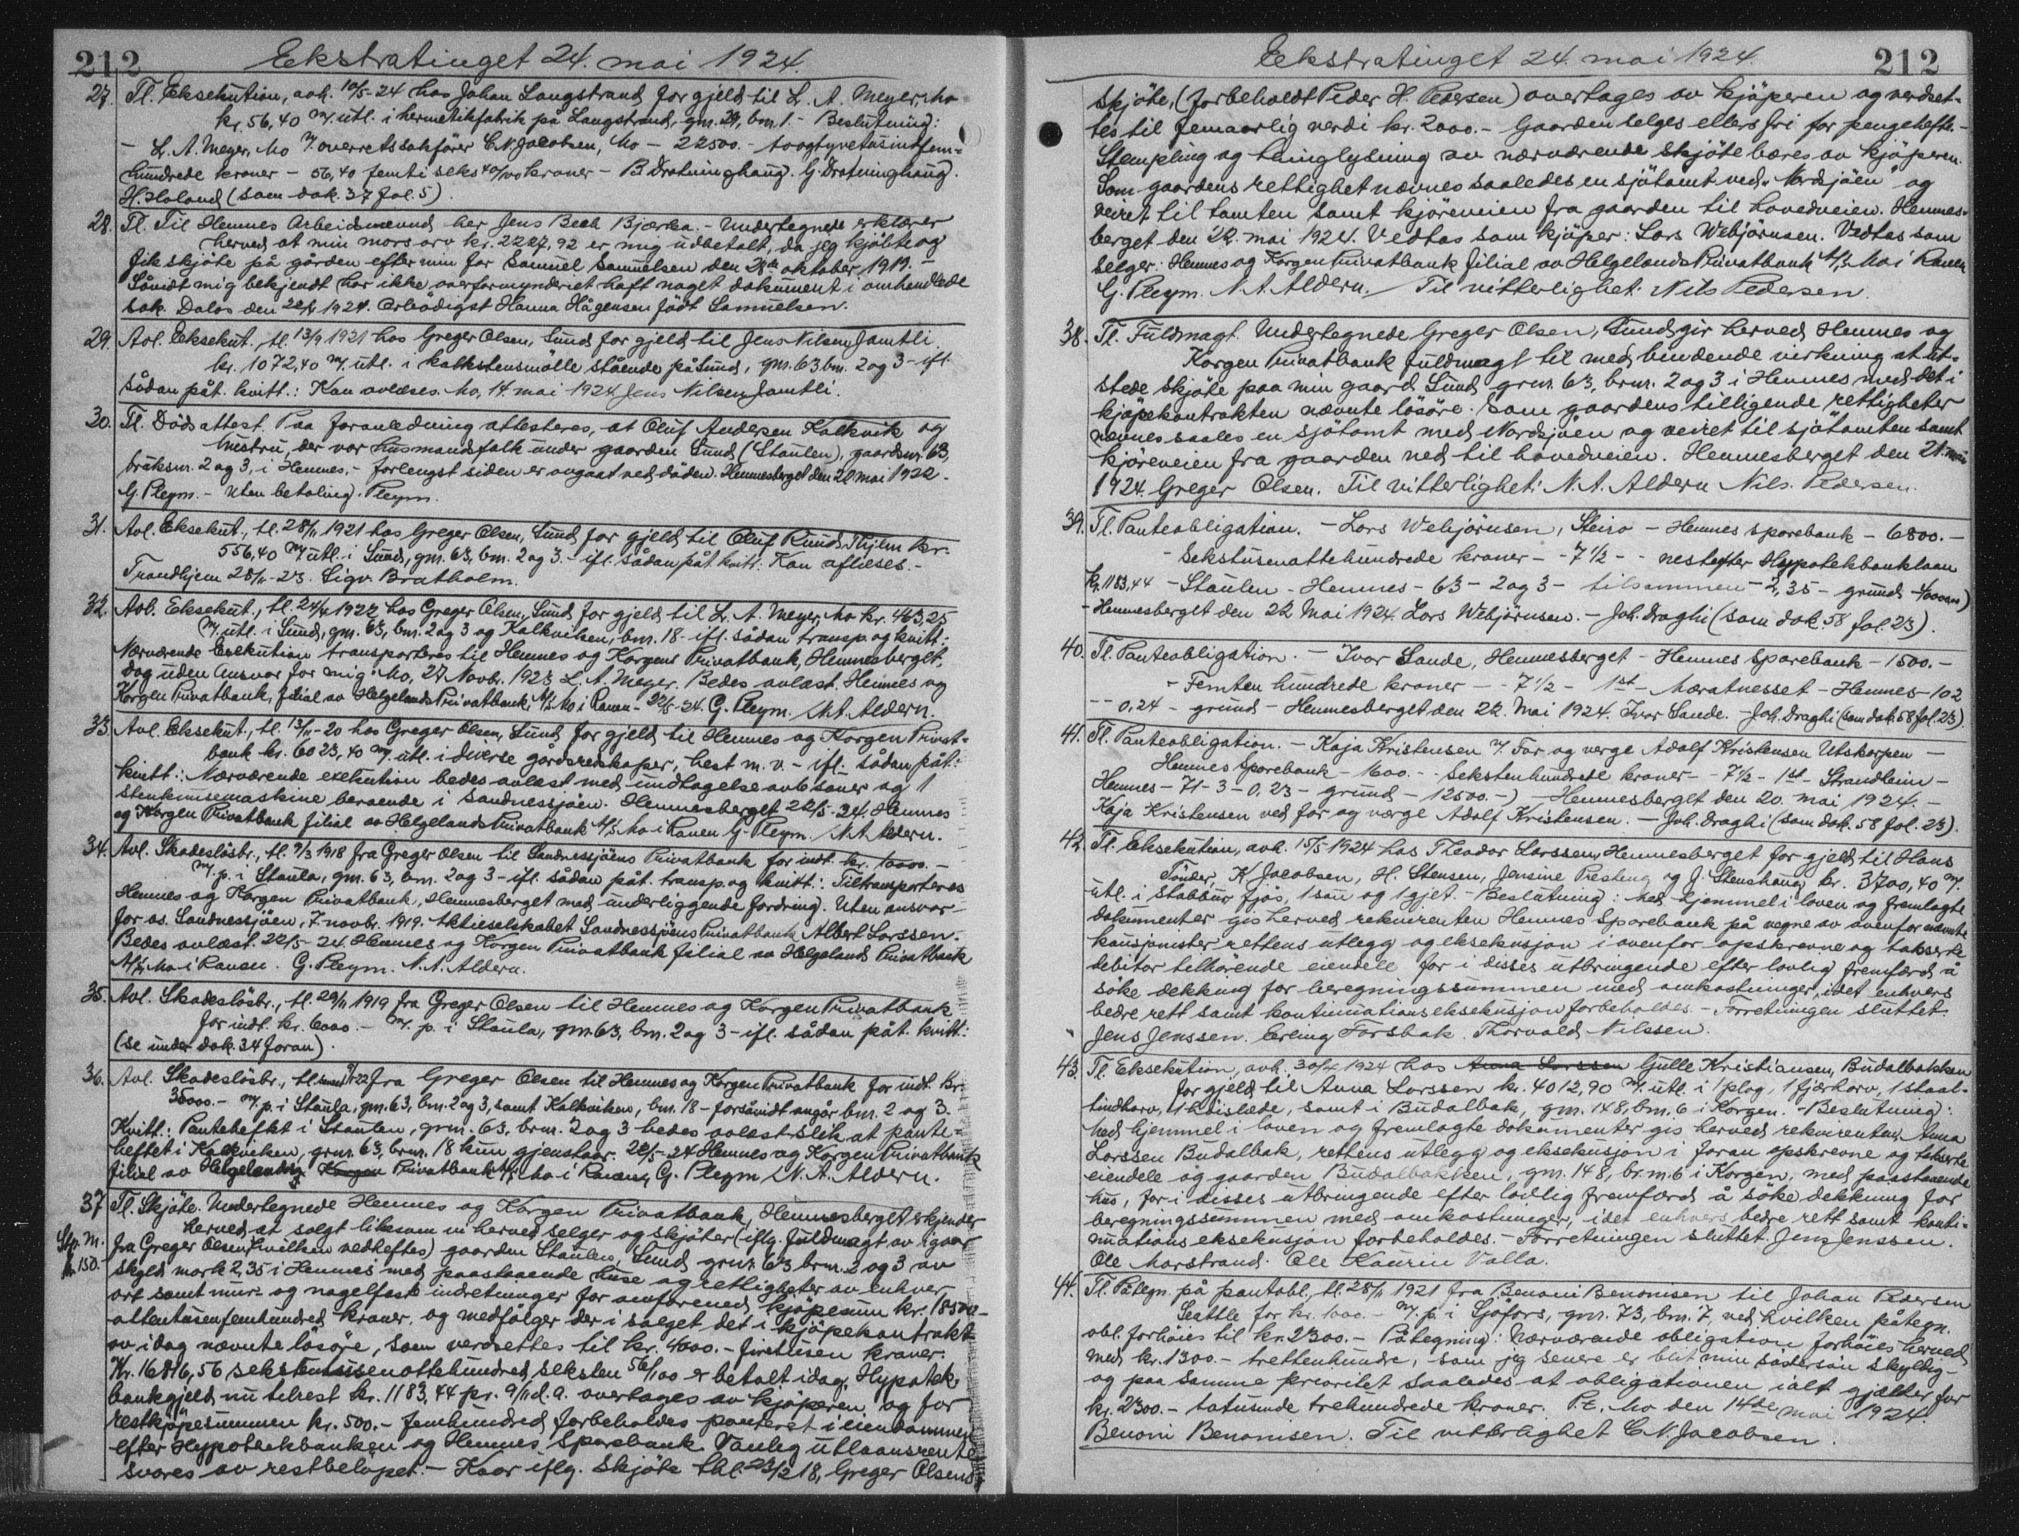 212 Ekstratinget 24. mai 1924.
27. Tl. Eksekution, avh. 10/5-24 hos Johan Langstrand for gjeld til L. A. Meyer, Mo
kr. 56,40 m/ utl. i hermetikfabrik på Langstrand, gnr. 29, bnr. 1. - Beslutning:
- L. A. Meyer, Mo v/ overretssakfører C. N. Jacobsen, Mo - 22500.- toogtyvetusindfem-
hundrede kroner - 56,40 femti seks 40/100 kroner - B Drotninghaug. G. Drotninghaug.
H. Holand (som dok. 37 fol. 5)
28. Tl. Til Hemnes Arbeidsnevnd her Jens Bech Bjærka. - Undertegnede erklærer
herved at min mors arv kr. 2227,92 er mig udbetalt, da jeg kjøbte og
fik skjøte på gården efter min far Samuel Samuelsen den 28de oktober 1919. -
Såvidt mig bekjendt har ikke overformynderiet haft noget dokument i omhandlede
sak. Dalos den 20/5 1924. Ærbødigst Hanna Hågensen født Samuelsen.
29. Avl. Eksekut., tl. 13/9 1921 hos Greger Olsen, Sund for gjeld til Jens Nilsen Jamtli
kr. 1072,40 m/ utl. i kalkstensmølle stående på Sund, gnr. 63 bnr. 2 og 3 - ifl.
sådan påt. kvitt.: Kan avlæses. Mo, 14. mai 1924 Jens Nilsen Jamtli.
30. Tl. Dødsattest. Paa foranledning attesteres, at Oluf Andersen Kalkvik og
hustru, der var husmandsfolk under gaarden Sund (Staulen), gaardsnr. 63,
bruksnr. 2 og 3, i Hemnes, - forlengst siden er avgaat ved døden. Hemnesberget den 22 mai 1922. -
G. Pleym. - Uten betaling. Pleym.
31. Avl. Eksekut., tl. 28/11 1921 hos Greger Olsen, Sund for gjeld til Oluf Ruud, Thjem kr.
556,40 m/ utl. i Sund, gnr. 63, bnr. 2 og 3 - ifl. sådan påt. kvitt: Kan aflæses. -
Trondhjem 28/11-23. Sigv. Bratholm.
32. Avl. Eksekut., tl. 24/11 1922 hos Greger Olsen, Sund for gjeld til L. A. Meyer, Mo kr. 463,25
m/ utl. i Sund, gnr. 63, bnr. 2 og 3 og Kalkviken, bnr. 18 - ifl. sådan transp. og kvitt.:
Nærværende Exekution transporteres til Hemnes og Korgens Privatbank, Hemnesberget,
dog uden Ansvar for mig. Mo, 27 Novbr. 1923 L. A. Meyer. Bedes avlæst. Hemnes og
Korgen Privatbank, filial av Helgelands Privatbank A/S Mo i Ranen - 22/5-24. G. Pleym. N. A. Aldern.
33. Avl. Eksekut., tl. 13/11-20 hos Greger Olsen, Sund for gjeld til Hemnes og Korgen Privat-
bank kr. 6023,40 m/ utl. i diverse gårdsredskaper, hest m. v. - ifl. sådan påt.:
kvitt.: Nærværende exekution bedes avlæst med undtagelse av 6 sauer og 1
stenknusemaskine beroende i Sandnessjøen. Hemnesberget 22/5-24. Hemnes
og Korgen Privatbank filial av Helgelands Privatbank A/S Mo i Ranen G. Pleym. N. A. Aldern.
34. Avl. Skadesløsbr., tl. 9/3 1918 fra Greger Olsen til Sandnessjøens Privatbank for indt. kr. 10000. -
m/ p. i Staula, gnr. 63, bnr. 2 og 3 - ifl. sådan påt. transp. og kvitt.: Tiltransporteres
Hemnes og Korgen Privatbank, Hemnesberget med underliggende fordring. Uten ansvar
for os. Sandnessjøen, 7. novbr. 1919. Aktieselskabet Sandnessjøens Privatbank Albert Larssen. -
Bedes avlæst. 22/5-24. Hemnes og Korgen Privatbank filial av Helgelands Privatbank
A/S, Mo i Ranen. G. Pleym. N. A. Aldern.
35. Avl. Skadesløsbr., tl. 29/11 1919 fra Greger Olsen til Hemnes og Korgen Privatbank
for indt. kr. 6000. - m/ p. i Staula, gnr. 63, bnr. 2 og 3 - ifl. sådan påt. kvitt:
(se under dok. 34 foran).
36. Avl. Skadesløsbr., tl. fra Greger Olsen til Hemnes og Korgen Privatbank for indt. kr.
35000. - m/ p. i Staula, gnr. 63, bnr. 2 og 3, samt Kalkviken, bnr. 18 - forsåvidt angår bnr. 2 og 3.
Kvitt.: Pantehæftet i Staulen, gnr. 63, bnr. 2 og 3 bedes avlæst slik at pante-
heftet i Kalkviken, gnr. 63, bnr. 18 kun gjenstaar. 22/5-24 Hemnes og Korgen Privatbank
filial av Helgelands Korgen Privatbank A/S Mo i Ranen, G. Pleym N. A. Aldern.
37 Tl. Skjøte. Undertegnede Hemnes og Korgen Privatbank, Hemnesberget erkjender
Stp. m. kr. 150.-
herved at solgt liksom vi herved selger og skjøter (iflg. fuldmagt av igaar
fra Greger Olsen, hvilken vedheftes) gaarden Staulen, Sund, gnr. 63 bnr. 2 og 3 av
skyld mark 2,35 i Hemnes med paastaaende huse og rettigheter av enhver
art samt mur- og nagelfaste indretninger for omforened kjøpesum kr. 18500.-
attentusenfemhundred kroner, og medfølger der i salget det i kjøpekontrakt
av idag nævnte løsøre, som verdsettes til kr. 4000.- firetusen kroner.
Kr. 16816,56 sekstenusenottehundred seksten 56/100 er betalt idag. Hypotek-
bankgjeld nu tilrest kr. 1183,44 pr. 9/11 d. a. overtages av kjøperen og for
restkjøpesummen kr. 500.- femhundred forbeholdes panteret i eiendommen
efter Hypothekbanken og Hemnes Sparebank. Vanlig utlaansrente
svares av restbeløpet. - Kaar iflg. skjøte thl. 23/2 18, Greger Olsens
Ekstratinget 24. mai 1924. 212
skjøte, (forbeholdt Peder H. Pedersen) overtages av kjøperen og verdset-
tes til femaarlig verdi kr. 2000. - Gaarden selges ellers fri for pengehefte. -
Stempling og tinglysning av nærværende skjøte bæres av kjøperen.
Som gaardens rettighet nævnes saaledes en sjøtomt ved "Nordsjøen" og
veiret til tomten samt kjøreveien fra gaarden til hovedveien. Hemnes-
berget den 22. mai 1924. Vedtas som kjøper: Lars Webjørnsen. Vedtas som
selger: Hemnes og Korgen Privatbank filial av Helgelands Privatbank A/S Mo i Ranen
G. Pleym. N. A. Aldern. Til vitterlighet: Nils Pedersen.
38. Tl. Fuldmagt. Undertegnede Greger Olsen, Sund, gir herved Hemnes og
Korgen Privatbank fuldmagt til med bindende virkning at ut-
stede skjøte paa min gaard Sund gnr. 63, bnr. 2 og 3 i Hemnes med det i
kjøpekontrakten nævnte løsøre. Som gaardens tilligende rettigheter
nævnes saales en sjøtomt med Nordsjøen og veiret til sjøtomten samt
kjøreveien fra gaarden ned til hovedveien. Hemnesberget den 21. mai
1924. Greger Olsen. Til vitterlighet: N. A. Aldern Nils Pedersen.
39. Tl. Panteobligation. - Lars Webjørnsen, Steiro - Hemnes Sparebank - 6800. -
- Sekstusenattehundrede kroner - - 7 1/2 - - nestefter Hypotekbanklaan
kr. 1183,44 - Staulen - Hemnes - 63 - 2 og 3 - tilsammen - 2,35 - grund - )
- Hemnesberget den 22 Mai 1924. Lars Webjørnsen. - Joh. Draghi (som dok. 58 fol. 23).
40. Tl. Panteobligation. - Ivar Sande, Hemnesberget - Hemnes Sparebank - 1500. -
- Femten hundrede kroner - - 7 1/2 - 1st - Maratnesset - Hemnes - 102
- - 0,24 - grund - Hemnesberget den 22. Mai 1924. Ivar Sande. - Joh. Draghi (som dok. 58 fol. 23).
41. Tl. Panteobligation. - Kaja Kristensen v/ Far og verge Adolf Kristensen Utskarpen -
Hemnes Sparebank - 1600. - - Sekstenhundrede kroner - - 7 1/2 - 1st - Strandheim -
Hemnes - 71 - 3 - 0,23 - grund - 12500. - ) - Hemnesberget den 20. mai 1924. -
Kaja Kristensen ved far og værge Adolf Kristensen. - Joh. Draghi (som dok. 58 fol. 23).
42. Tl. Eksekution, avh. 15/5 1924 hos Theodor Larssen, Hemnesberget for gjeld til Hans
Tønder, K Jacobsen, H. Stensen, Jensine Presteng og J. Stenshaug kr. 3700,40 m/
utl. i stabbur fjøs, 1 sau og 1 gjet. - Beslutning: Med hjemmel i loven og fremlagte
dokumenter gis herved rekvirenten Hemnes Sparebank på vegne av ovenfor nævnte
kausjonister rettens utlegg og eksekusjon i ovenfor opskrevne og takserte
debitor tilhørende eiendele for i disses utbringende efter lovlig fremfærd å
søke dekking for beregningssummen med omkostninger, idet enhvers
bedre rett samt kontinuationseksekusjon forbeholdes. - Forretningen sluttet.
Jens Jenssen. Erling Forsbak. Thorvald Nilssen.
43. Tl. Eksekution, avh. 30/4 1924 hos Anna Larssen Gulle Kristiansen, Budalbakken
for gjeld til Anna Larssen kr. 4012,90 m/ utl. i 1 plog, 1 fjærharv, 1 staal-
tindharv, 1 slæde, samt i Budalbak, gnr. 148, bnr. 6 i Korgen. - Beslutning:
Med hjemmel i loven og fremlagte dokumenter gis herved rekvirenten Anna
Larssen Budalbak, rettens utlegg og eksekusjon i foran opskrevne og takserte
eiendele og gaarden Budalbakken, gnr. 148, br.nr. 6 i Korgen, med paastaaende
hus, for i disses utbringende efter lovlig fremfærd å søke dekkning for
beregningssummen med omkostninger, idet enhvers bedre rett samt konti-
nuationseksekusjon forbeholdes. - Forretningen sluttet. Jens Jenssen.
Ole Marstrand. Ole Kaurin Valla.
44. Tl. Påtegn. på pantobl., tl. 28/11 1921 fra Benoni Benonisen til Johan Pedersen
Seattle for kr. 1000. - m/ p. i Sjøfors, gnr. 73, bnr. 7, ved hvilken påtegn.
obl. forhøies til kr. 2300. - Påtegning: Nærværende obligation forhøies herved
med kr. 1300. - trettenhundre, - som jeg senere er blit min søstersøn skyldig -
og paa samme prioritet saaledes at obligationen ialt gjælder for
kr. 2300. - totusinde trehundrede kroner. P.t. Mo den 14de mai 1924.
Benoni Benonisen. Til vitterlighet C. N. Jacobsen.